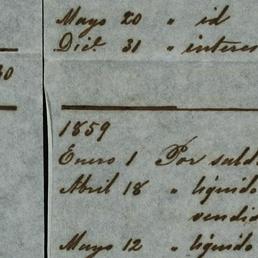 Mayo 20 " id
Dice. 31 " interes
30
1859
Enero 1 Por sald
Abril 18 " líquido
vendid
Mayo 12 " líquido